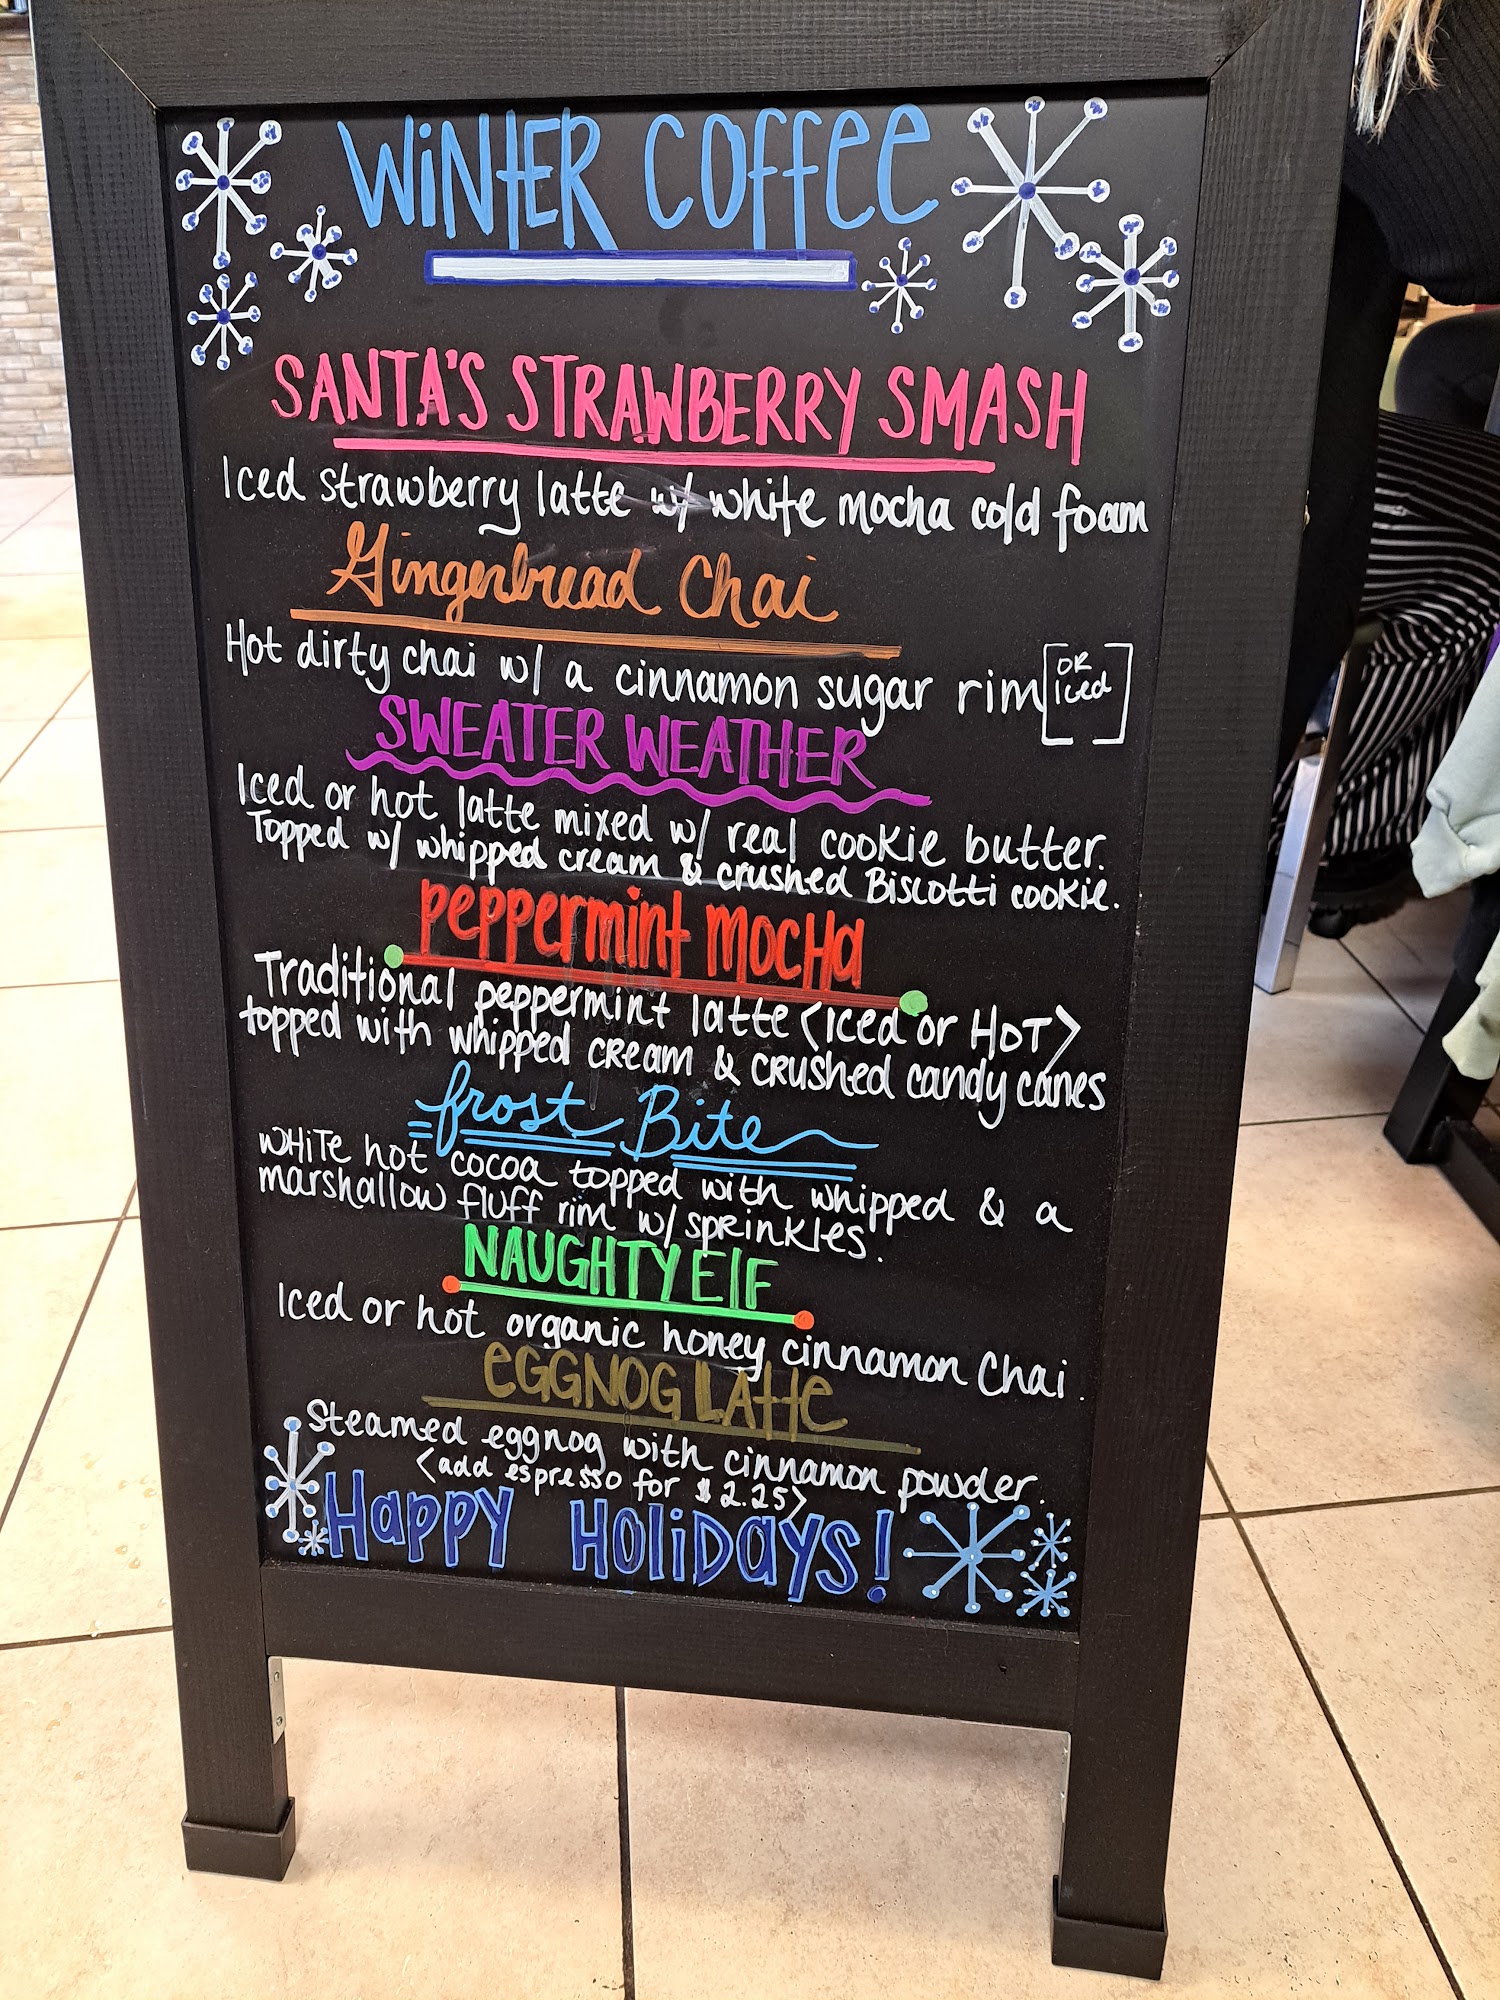 WiNtER COffee
SANTA'S STRAWBERRY SMASH
Iced strawberry latte w/ white mocha cold foam
Gingerbread Chai
Hot dirty chai w/ a cinnamon sugar rim [OR Iced]
SWEATER WEATHER
Iced or hot latte mixed w/ real cookie butter.
Topped w/ whipped cream & crushed Biscotti cookie.
peppermint MOCHa
Traditional peppermint latte <Iced or HOT>
topped with whipped cream & crushed candy canes
frost Bite
WHiTe hot cocoa topped with whipped & a
marshallow fluff rim w/ sprinkles.
NAUGHTY ElF
Iced or hot organic honey cinnamon Chai.
eGGNOG LAtte
Steamed eggnog with cinnamon powder.
<add espresso for $2.25>
Happy HoliDays!